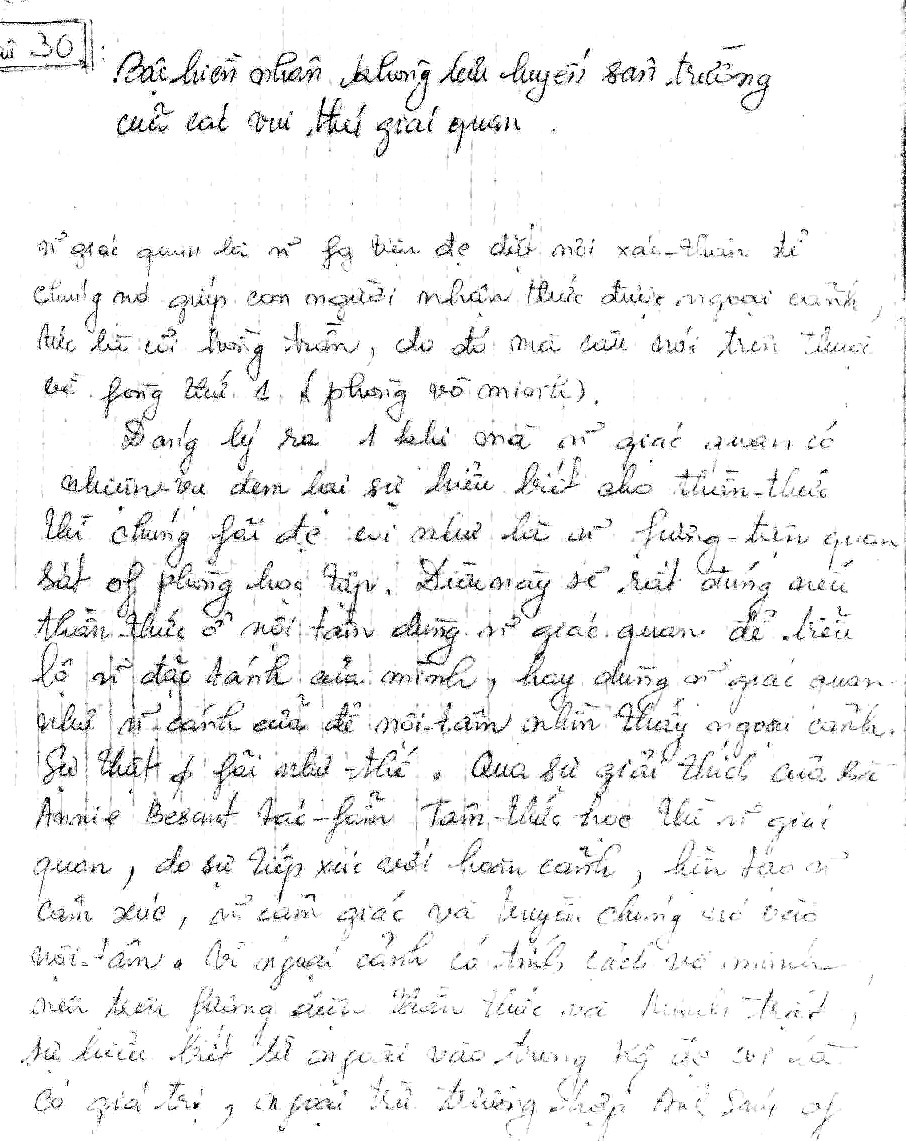 30 :
Bậc hiền nhân không lưu luyến sân trường
của cái vui thú giác quan.
n~ giác quan là n~ fg tiện đc đặt nơi xác-thân để
chúng nó giúp con người nhận thức được ngoại cảnh,
tức là cõi hồng trần, do đó mà câu nói trên thuộc
về fòng thứ 1 (phòng vô minh).
Đáng lý ra 1 khi mà n~ giác quan có
nhiệm-vụ đem lại sự hiểu biết cho thần-thức
thì chúng fải đc coi như là n~ fương-tiện quan
sát of phòng học tập. Điều này sẽ rất đúng nếu
thần-thức ở nội tâm dùng n~ giác quan để biểu
lộ n~ đặc tánh của mình, hay dùng n~ giác quan
như n~ cánh cửa để nội-tâm nhìn thấy ngoại cảnh.
Sự thật fải như-thế. Qua sự giải thích của bà
Annie Besant tác-fẩm Tâm-thức học thì n~ giác
quan, do sự tiếp xúc với hoàn cảnh, liền tạo n~
cảm xúc, n~ cảm giác và truyền chúng nó vào
nội-tâm. Vì ngoại cảnh có tính cách vô minh,
nên trên fương diện thần thức và minh triết,
sự hiểu biết từ ngoài vào trong kg đc coi là
có giá trị, ngoại trừ trường hợp Ánh Sáng of